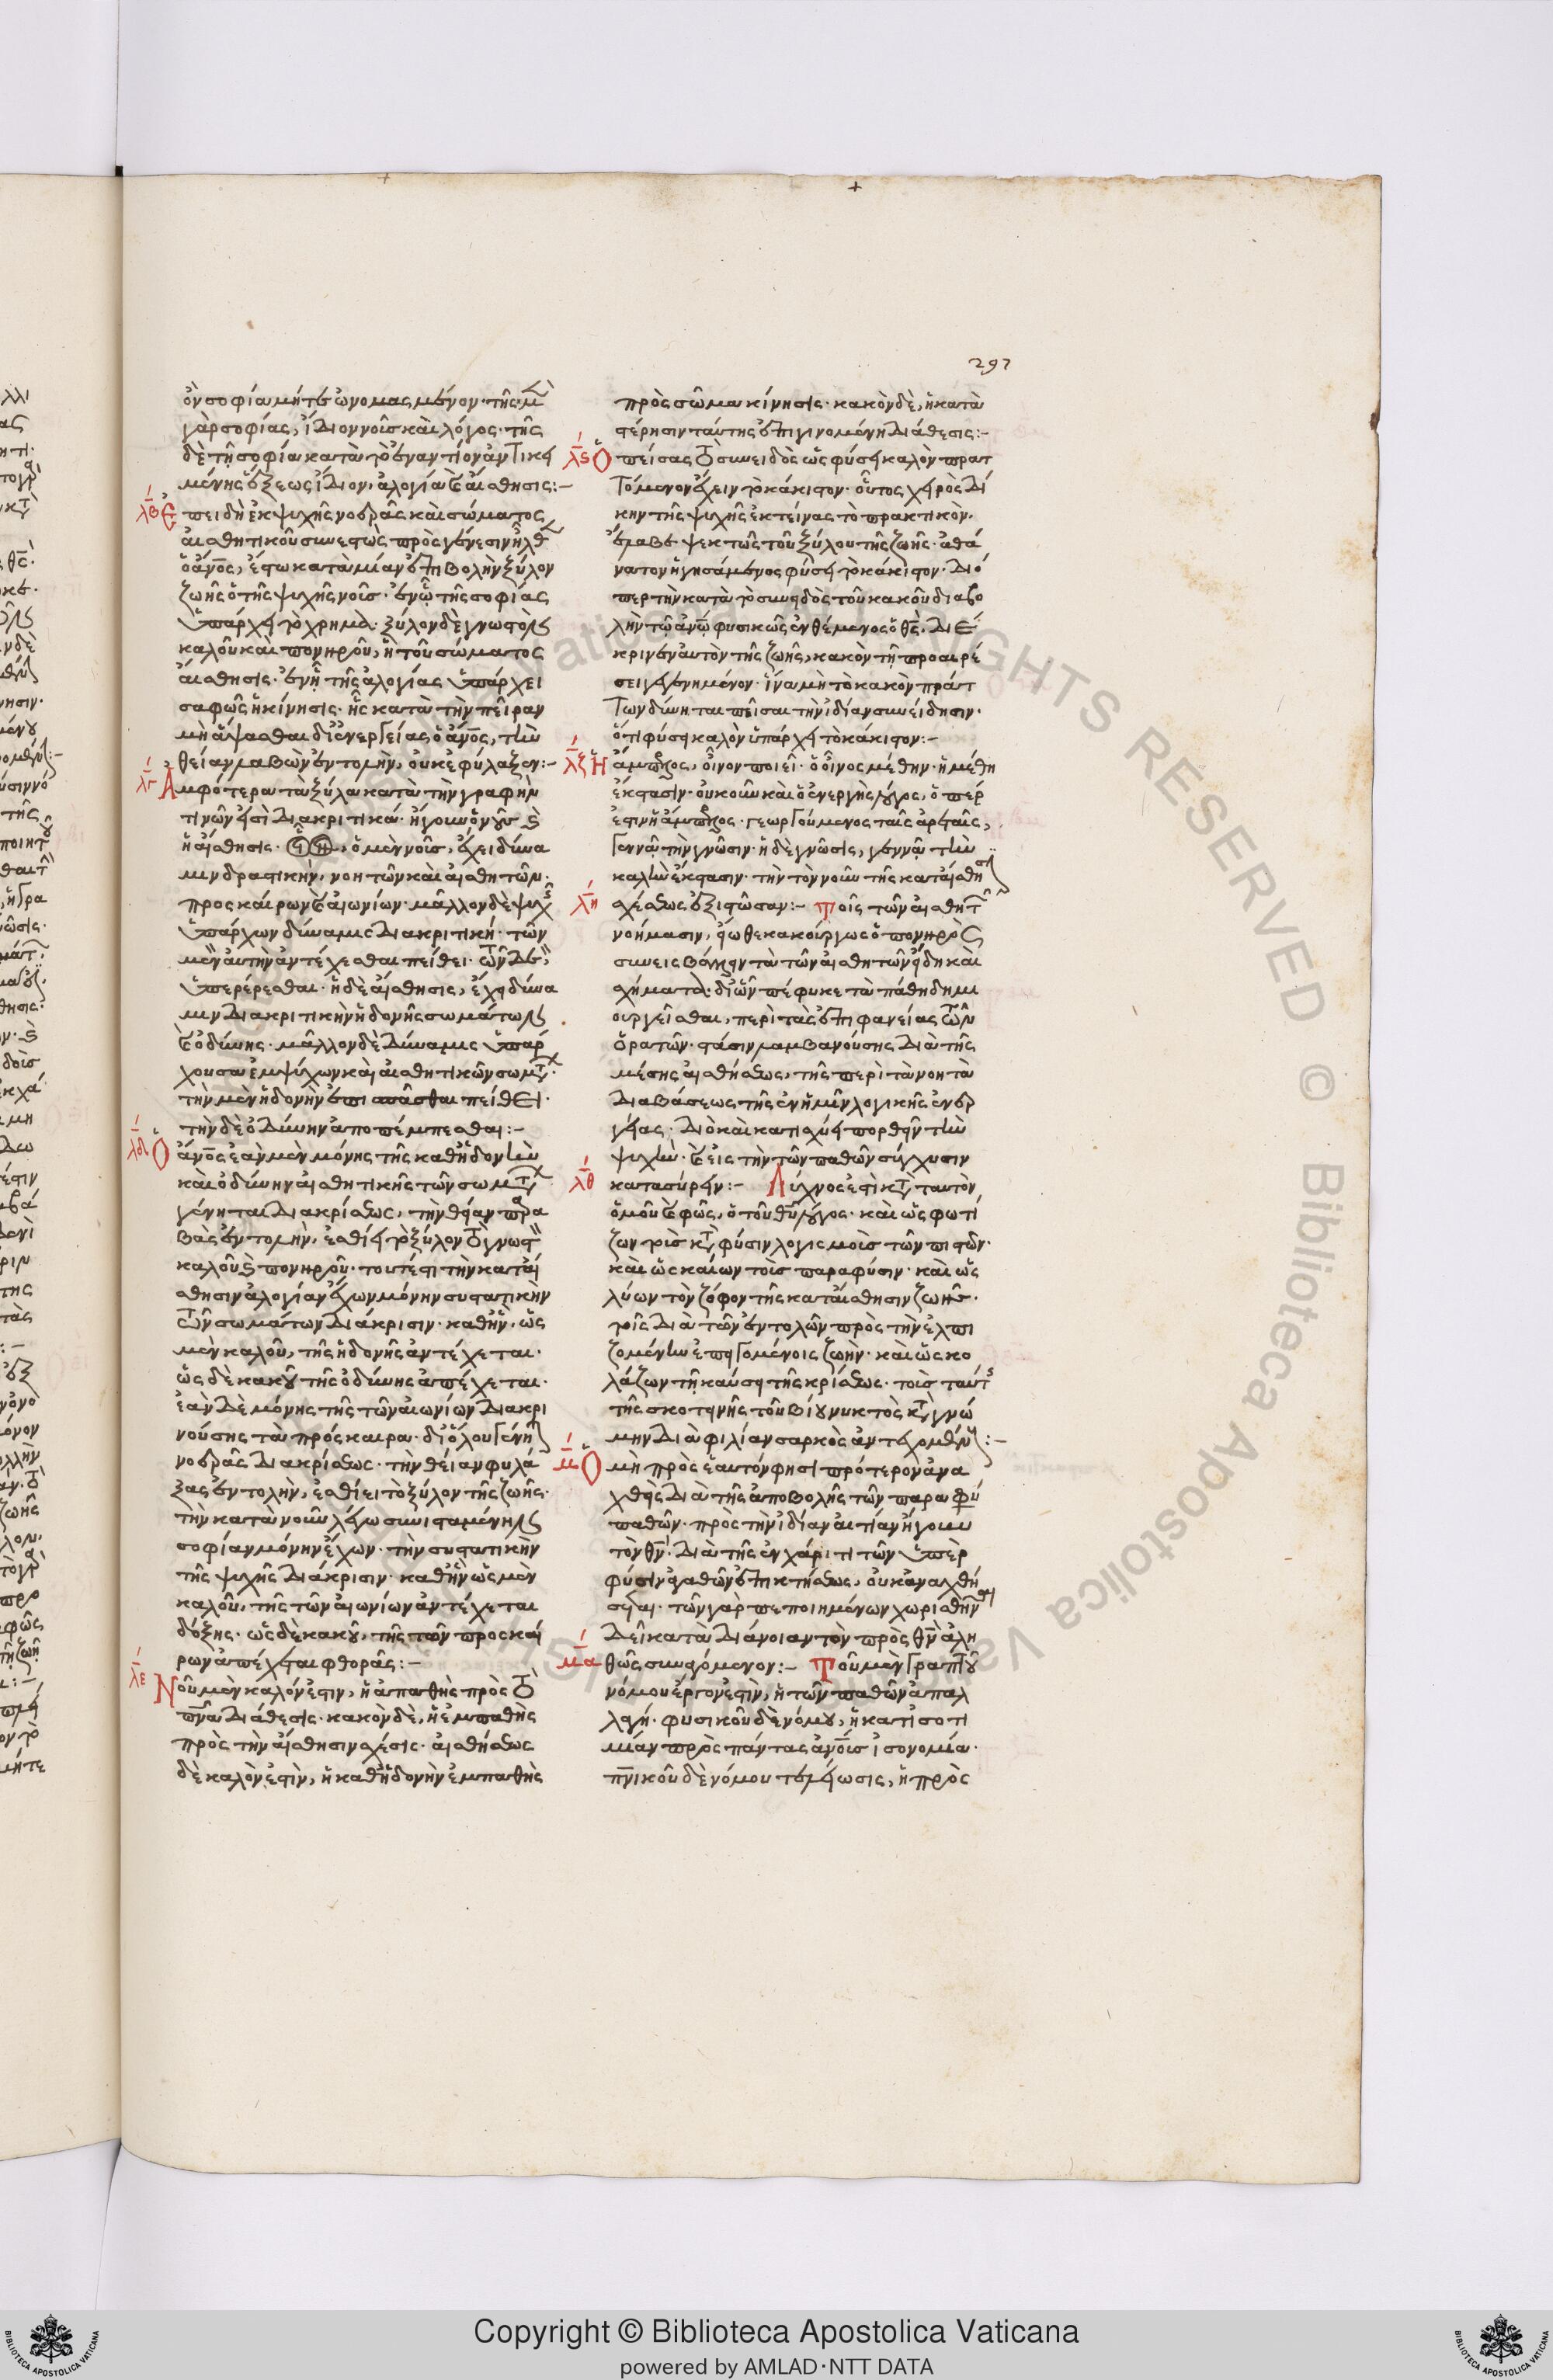 297
ὸν σοφία μήτε ὠνομασμένον· τῆς μὲν
γὰρ σοφίας, ἴδιον νοῦς καὶ λόγος· τῆς
δὲ τῇ σοφία κατὰ τὸ ἐναντίον ἀντικει
μένης ἕξεως ἴδιον, ἀλογία καὶ αἴσθησις:-
λβ Ἐπειδὴ ἐκ ψυχῆς νοερᾶς καὶ σώματος
αἰσθητικοῦ συνεστὼς πρὸς γένεσιν ἦλθεν
ὁ ἄνος, ἔστω κατὰ μίαν ἐπιβολὴν ξύλον
ζωῆς ὁ τῆς ψυχῆς νοῦς· ἐν ᾧ τῆς σοφίας
ὑπάρχει τὸ χρῆμα· ξύλον δὲ γνωστὸν
καλοῦ καὶ πονηροῦ, ἡ τοῦ σώματος
αἴσθησις· ἐν ᾗ τῆς ἀλογίας ὑπάρχει
σαφῶς ἡ κίνησις· ἧς κατὰ τὴν πεῖραν
μὴ ἅψασθαι δι' ἐνεργείας ὁ ἄνος, τὴν
θείαν λαβὼν ἐντολὴν, οὐκ ἐφύλαξεν:-
λγ Ἀμφότερα τὰ ξύλα κατὰ τὴν γραφὴν
τινῶν εἰσὶ διακριτικά· ἤγουν ὁ νοῦς καὶ
ἡ αἴσθησις· οἷον, ὁ μὲν νοῦς, ἔχει δύνα
μιν δραστικὴν, νοητῶν καὶ αἰσθητῶν·
προσκαίρων καὶ αἰωνίων· μᾶλλον δὲ ψυχῆς
ὑπάρχων δύναμις διακριτική· τῶν
μὲν αὐτὴν ἀντέχεσθαι πείθει· τῶν δὲ,
ὑπερέρεσθαι· ἡ δὲ αἴσθησις, ἔχει δύνα
μιν διακριτικὴν ἡδονῆς σωμάτων
καὶ ὀδύνης· μᾶλλον δὲ δύναμις ὑπάρ
χουσα ἐμψύχων καὶ αἰσθητικῶν σωμάτων·
τὴν μὲν ἡδονὴν ἐπισπᾶσθαι πείθει·
τὴν δὲ ὀδύνην ἀποπέμπεσθαι:-
λδ Ὁ ἄνος ἐὰν μὲν μόνης τῆς καθ' ἡδονὴν
καὶ ὀδύνην αἰσθητικῆς τῶν σωμάτων
γένηται διακρίσεως, τὴν θείαν παρα
βὰς ἐντολὴν, ἐσθίει τὸ ξύλον τὸ γνωστὸν
καλοῦ καὶ πονηροῦ· τουτέστι τὴν κατ' αἴ
σθησιν ἀλογίαν ἔχων μόνην συστατικὴν
τῶν σωμάτων διάκρισιν· καθ' ἣν, ὡς
μὲν καλοῦ, τῆς ἡδονῆς ἀντέχεται·
ὡς δὲ κακοῦ τῆς ὀδύνης ἀπέχεται·
ἐὰν δὲ μόνης τῆς τῶν αἰωνίων διακρι
νούσης τὰ πρόσκαιρα· δι' ὅλου γένηται
νοερᾶς διακρίσεως· τὴν θείαν φυλά
ξας ἐντολὴν, ἐσθίει τὸ ξύλον τῆς ζωῆς·
τὴν κατὰ νοῦν λέγω συνισταμένην
σοφίαν μόνην ἔχων· τὴν συστατικὴν
τῆς ψυχῆς διάκρισιν· καθ' ἣν ὡς μὲν
καλοῦ, τῆς τῶν αἰωνίων ἀντέχεται
δόξης· ὡς δὲ κακοῦ, τῆς τῶν προσκαί
ρων ἀπέχεται φθορᾶς:-
λε Νοῦ μὲν καλόν ἐστιν, ἡ ἀπαθὴς πρὸς τὸ
πνα διάθεσις· κακὸν δὲ, ἡ ἐμπαθὴς
πρὸς τὴν αἴσθησιν σχέσις· αἰσθήσεως
δὲ καλὸν ἐστὶν, ἡ καθ' ἡδονὴν ἐμπαθὴς
πρὸς σῶμα κίνησις· κακὸν δὲ, ἡ κατὰ
στέρησιν ταύτης ἐπιγινομένη διάθεσις:-
λς Ὁ πείσας τὸ συνειδὸς ὡς φύσει καλὸν πρατ
τόμενον ἔχειν τὸ κάκιστον· οὗτος χειρὸς δί
κην τῆς ψυχῆς ἐκτείνας τὸ πρακτικὸν,
ἔλαβε ψεκτῶς τοῦ ξύλου τῆς ζωῆς· ἀθά
νατον ἡγησάμενος φύσει τὸ κάκιστον· διό
περ τὴν κατὰ τὸ συνειδὸς τοῦ κακοῦ διαβο
λὴν τῷ ἀνῳ φυσικῶς ἐνθέμενος ὁ θς, διέ
κρινεν αὐτὸν τῆς ζωῆς, κακὸν τῇ προαιρέ
σει γεγενημένον· ἵνα μὴ τὸ κακὸν πράτ
των δύνηται πεῖσαι τὴν ἰδίαν συνείδησιν·
ὅτι φύσει καλὸν ὑπάρχει τὸ κάκιστον:-
λζ Ἡ ἄμπελος, οἶνον ποιεῖ· ὁ οἶνος μέθην· ἡ μέθη
ἔκστασιν· οὐκοῦν καὶ ὁ ἐνεργὴς λόγος, ὅπερ
ἐστιν ἡ ἄμπελος· γεωργούμενος ταῖς ἀρεταῖς,
γεννᾷ τὴν γνῶσιν· ἡ δὲ γνῶσις, γεννᾷ τὴν
καλὴν ἔκστασιν· τὴν τὸν νοῦν τῆς κατ' αἴσθησιν
λη σχέσεως ἐξιστῶσαν:- Τοῖς τῶν αἰσθητῶν
νοήμασιν, εἴωθε κακούργως ὁ πονηρὸς
συνεισβάλλειν τὰ τῶν αἰσθητῶν εἴδη καὶ
σχήματα· δι' ὧν πέφυκε τὰ πάθη δημι
ουργεῖσθαι, περὶ τὰς ἐπιφανείας τῶν
ὁρατῶν· στάσιν λαμβανούσης διὰ τῆς
μέσης αἰσθήσεως, τῆς περὶ τὰ νοητὰ
διαβάσεως τῆς ἐν ἡμῖν λογικῆς ἐνερ
γείας· διὸ καὶ κατισχύει πορθεῖν τὴν
ψυχὴν· καὶ εἰς τὴν τῶν παθῶν σύγχυσιν
λθ κατασύρειν:- Λύχνος ἐστὶ κατὰ ταυτὸν
ὁμοῦ καὶ φῶς, ὁ τοῦ θυ λόγος· καὶ ὡς φωτί
ζων τοὺς κατὰ φύσιν λογισμοὺς τῶν πιστῶν·
καὶ ὡς καίων τοὺς παρα φύσιν· καὶ ὡς
λύων τὸν ζόφον τῆς κατ' αἴσθησιν ζωῆς·
τοῖς διὰ τῶν ἐντολῶν πρὸς τὴν ἐλπι
ζομένην ἐπειγομένοις ζωὴν· καὶ ὡς κο
λάζων τῇ καύσει τῆς κρίσεως· τοὺς ταύτης
τῆς σκοτεινῆς τοῦ βίου νυκτὸς κατὰ γνώ
μην διὰ φιλίαν σαρκὸς ἀντεχομένους:-
μ Ὁ μὴ πρὸς ἑαυτόν φησι πρότερον ἀνα
χθεὶς διὰ τῆς ἀποβολῆς τῶν παρα φύσιν
παθῶν· πρὸς τὴν ἰδίαν αἰτίαν ἤγουν
τὸν θν· διὰ τῆς ἐν χάριτι τῶν ὑπὲρ
φύσιν ἀγαθῶν ἐπικτήσεως, οὐκ ἀναχθή
σεται· τῶν γὰρ πεποιημένων χωρισθῆναι
δεῖ κατὰ διάνοιαν τὸν πρὸς θν ἀλη
μα θῶς συναγόμενον:- Τοῦ μὲν γραπτοῦ
νόμου ἔργον ἐστὶν, ἡ τῶν παθῶν ἀπαλ
λαγή· φυσικοῦ δὲ νόμου, ἡ κατ' ἰσοτι
μίαν πρὸς πάντας ἀνους ἰσονομία·
πνικοῦ δὲ νόμου τελείωσις, ἡ πρὸς
Copyright © Biblioteca Apostolica Vaticana
powered by AMLAD·NTT DATA